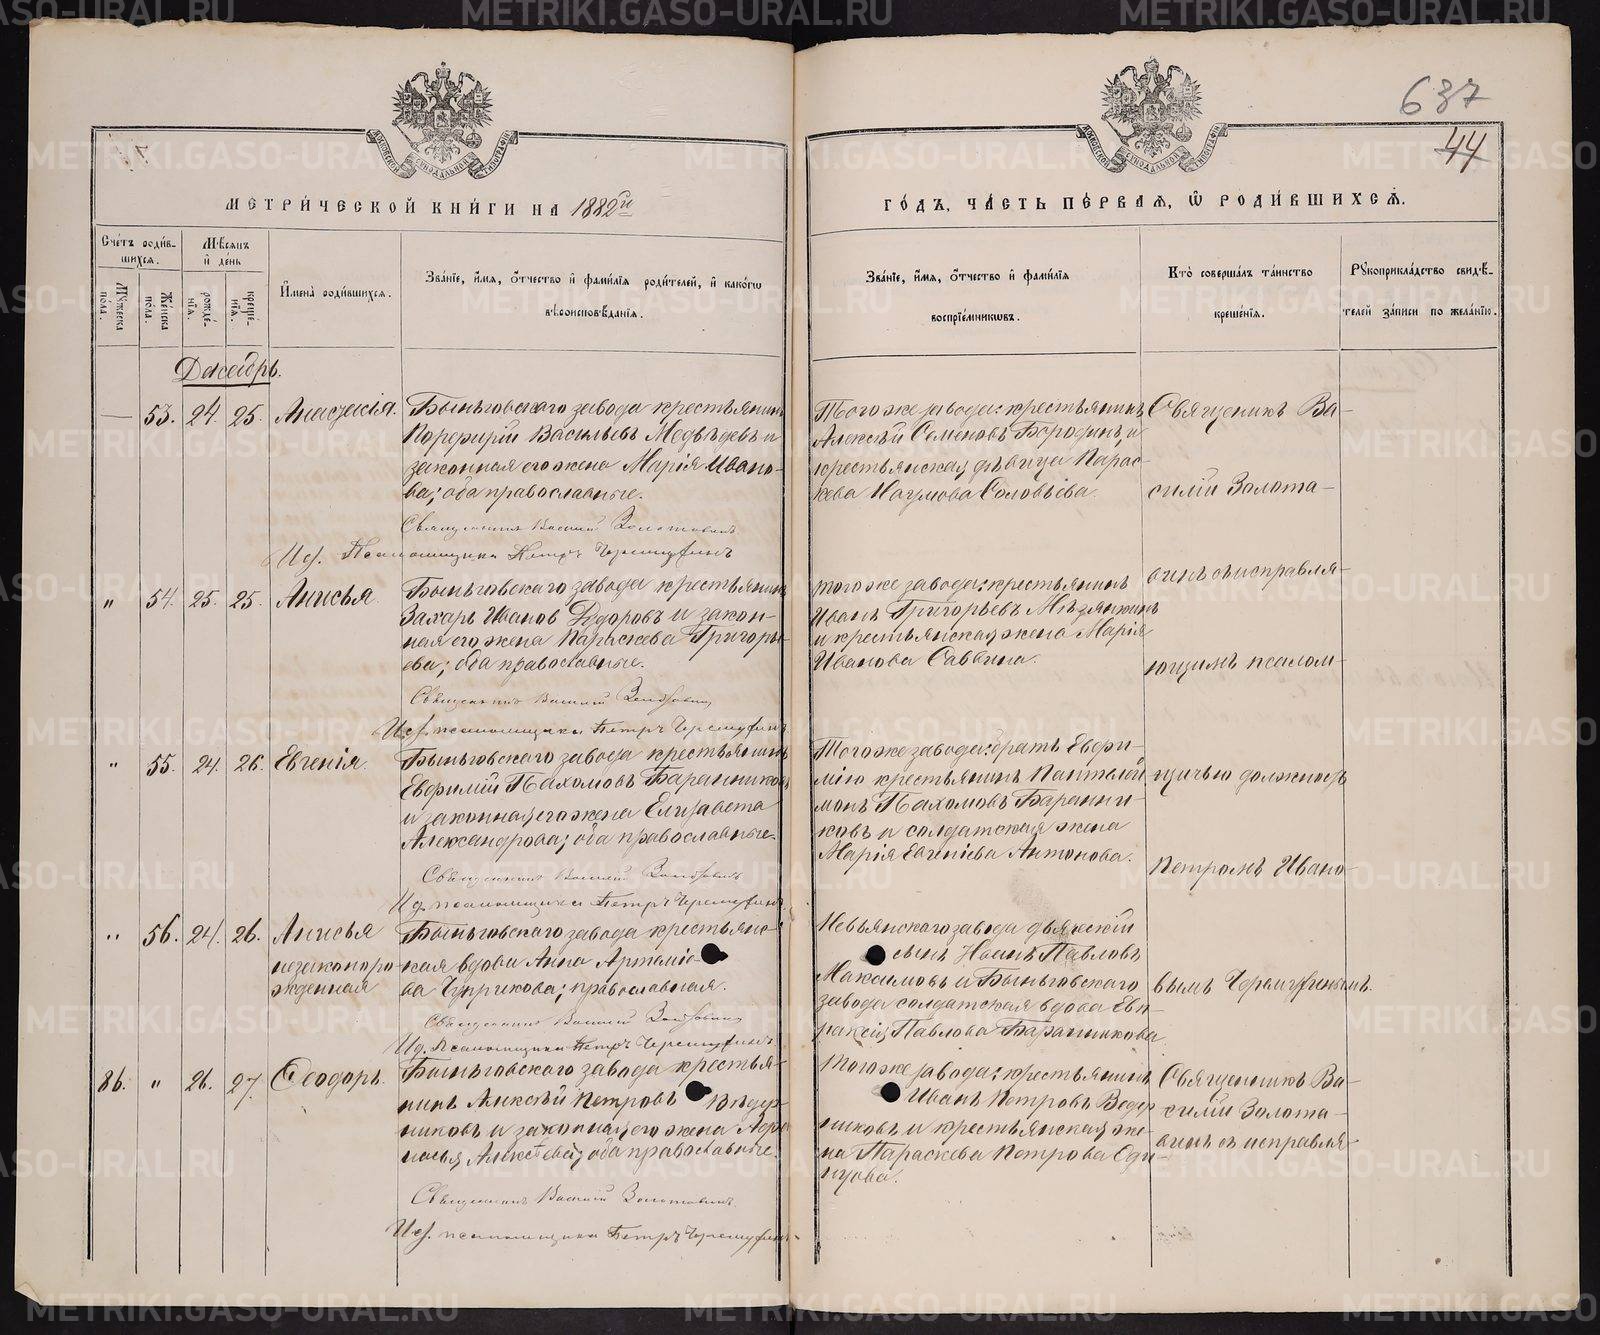 637
44
МЕТРИ́ЧЕСКОЙ КНИ́ГИ НА 1882й
ГО́ДЪ, ЧА́СТЬ ПЕ́РВАЯ, Ѡ РОДИ́ВШИХСЯ.
Сче́тъ роди́вшихся.
Мѣсяцъ и̑ день
Мужеска пола.
Женска пола.
рожде́нїя.
креще́нїя.
И̑мена̀ роди́вшихся.
Зва́нїе, и̑мя, ѻ̑тчество и̑ фами́лїя роди́телей, и̑ како́гѡ
вѣроисповѣ́данїя.
Зва́нїе, и̑мя, ѻ̑тчество и̑ фами́лїя
воспрїе́мникѡвъ.
Кто̀ соверша́лъ та́инство
креще́нїя.
Рꙋкоприкла́дство свидѣ́-
телей за́писи по жела́нїю.
Декабрь.
— 53. 24. 25. Анастасія.
Быньговскаго завода крестьянинъ
Порфирій Васильевъ Медвѣдевъ и
законная его жена Марія Ивано-
ва; оба православные.
Священникъ Василій Золотавинъ
Исп. Псаломщика Петръ Черемухинъ
Тогоже завода: крестьянинъ
Алексѣй Семеновъ Бородинъ, и
крестьянская дѣвица Парас-
кева Наумова Соловьева.
" 54. 25. 25. Анисья
Быньговскаго завода крестьянинъ
Захаръ Ивановъ Ѳедоровъ и закон-
ная его жена Параскева Григорь-
ева; оба православные.
Священникъ Василій Золотавинъ
Исп. псаломщика Петръ Черемухинъ
тогоже завода: крестьянинъ
Иванъ Григорьевъ
и крестьянская жена Марія
Иванова Саввина.
" 55. 24. 26. Евгенія.
Быньговскаго завода крестьянинъ
Евфимій Пахомовъ Баранниковъ
и законная его жена Елизавета
Александрова; оба православные.
Священникъ Василій Золотавинъ
Ид. псаломщика Петръ Черемухинъ
Тогоже завода: братъ Евфи-
мію крестьянинъ Пантелей-
монъ Пахомовъ Баранни-
ковъ и солдатская жена
Марія Евгеніева Антонова.
" 56. 24. 26. Анисья
незаконоро-
жденная
Быньговскаго завода крестьянс-
кая вдова Анна Артеміе-
ва Чуприкова; православная.
Священникъ Василій Золотавинъ
Ид. Псаломщика Петръ Черемухинъ
Невьянскаго завода
сынъ Иванъ Павловъ
Максимовъ и Быньговскаго
завода солдатская вдова Евп-
раксія Павлова Баранникова
86. " 26. 27. Ѳеодоръ.
Быньговскаго завода крестья-
нинъ Алексѣй Петровъ Ведер-
никовъ и законная его жена
Алексѣева; оба православные.
Священникъ Василій Золотавинъ.
Исп. псаломщика Петръ Черемухинъ
Тогоже завода: крестьянинъ
Иванъ Петровъ Ведер-
никовъ и крестьянская же-
на Параскева Петрова Оди-
нцова.
Священникъ Ва-
силій Золота-
винъ съ исправля-
ющимъ псалом-
щичью должность
Петромъ Ивано-
вымъ Черемухинымъ.
Священникъ Ва-
силій Золота-
винъ съ исправля-